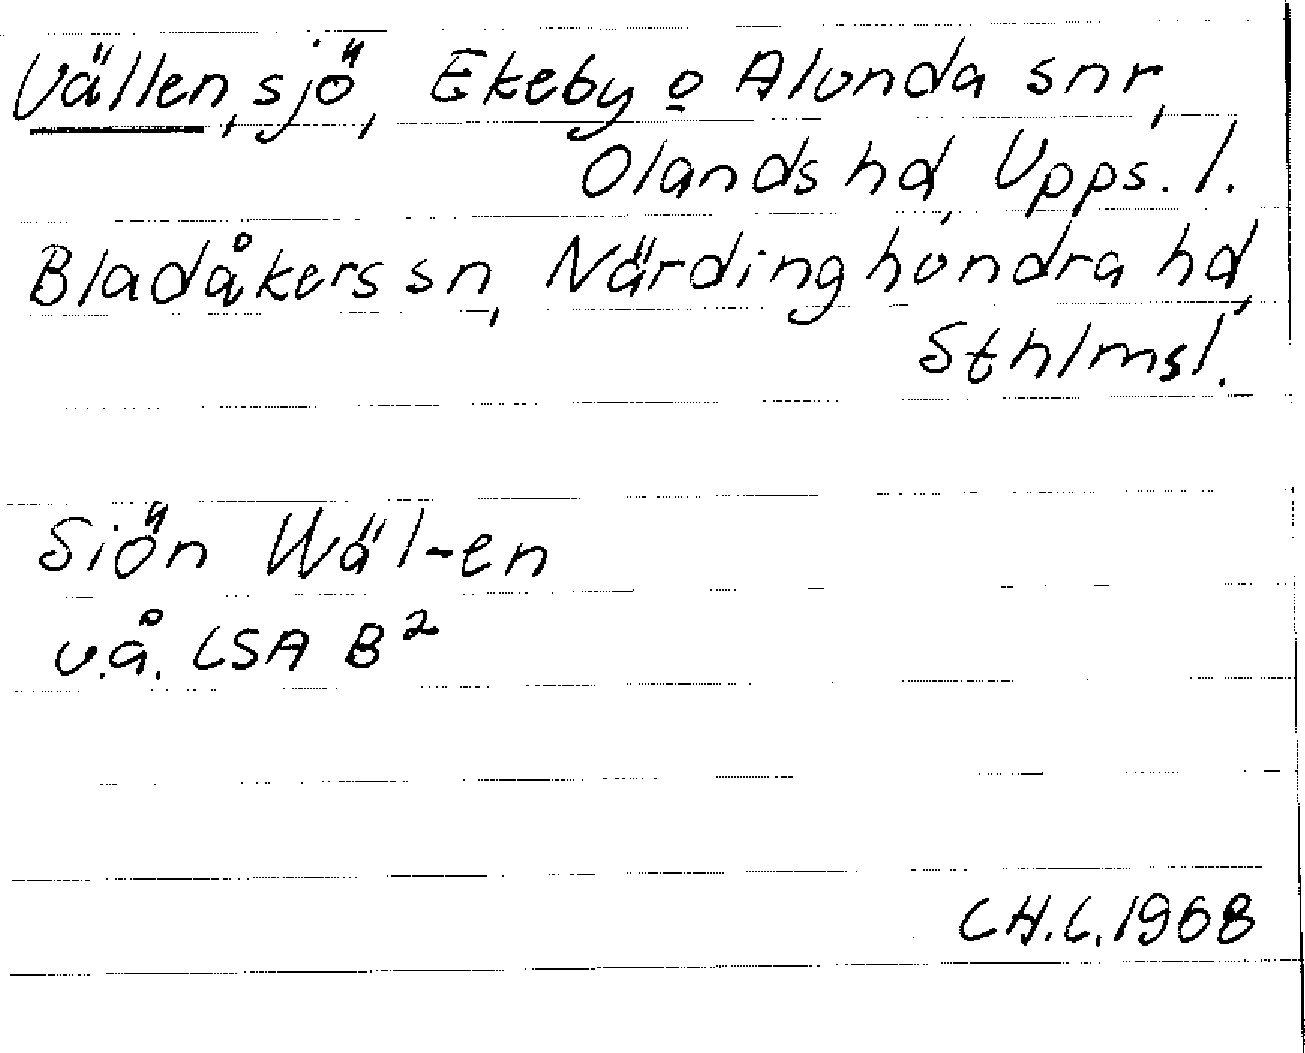 Vällen, sjö, Ekeby o Alunda snr,
Olands hd, Upps. l.
Bladåkers sn, Närdinghundra hd,
Sthlms l.
Siön Wäl-en
u.å. LSA B²
CH.L. 1968